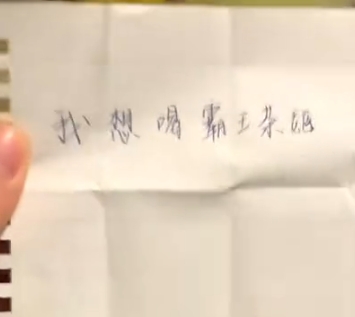 我想喝霸王茶姬